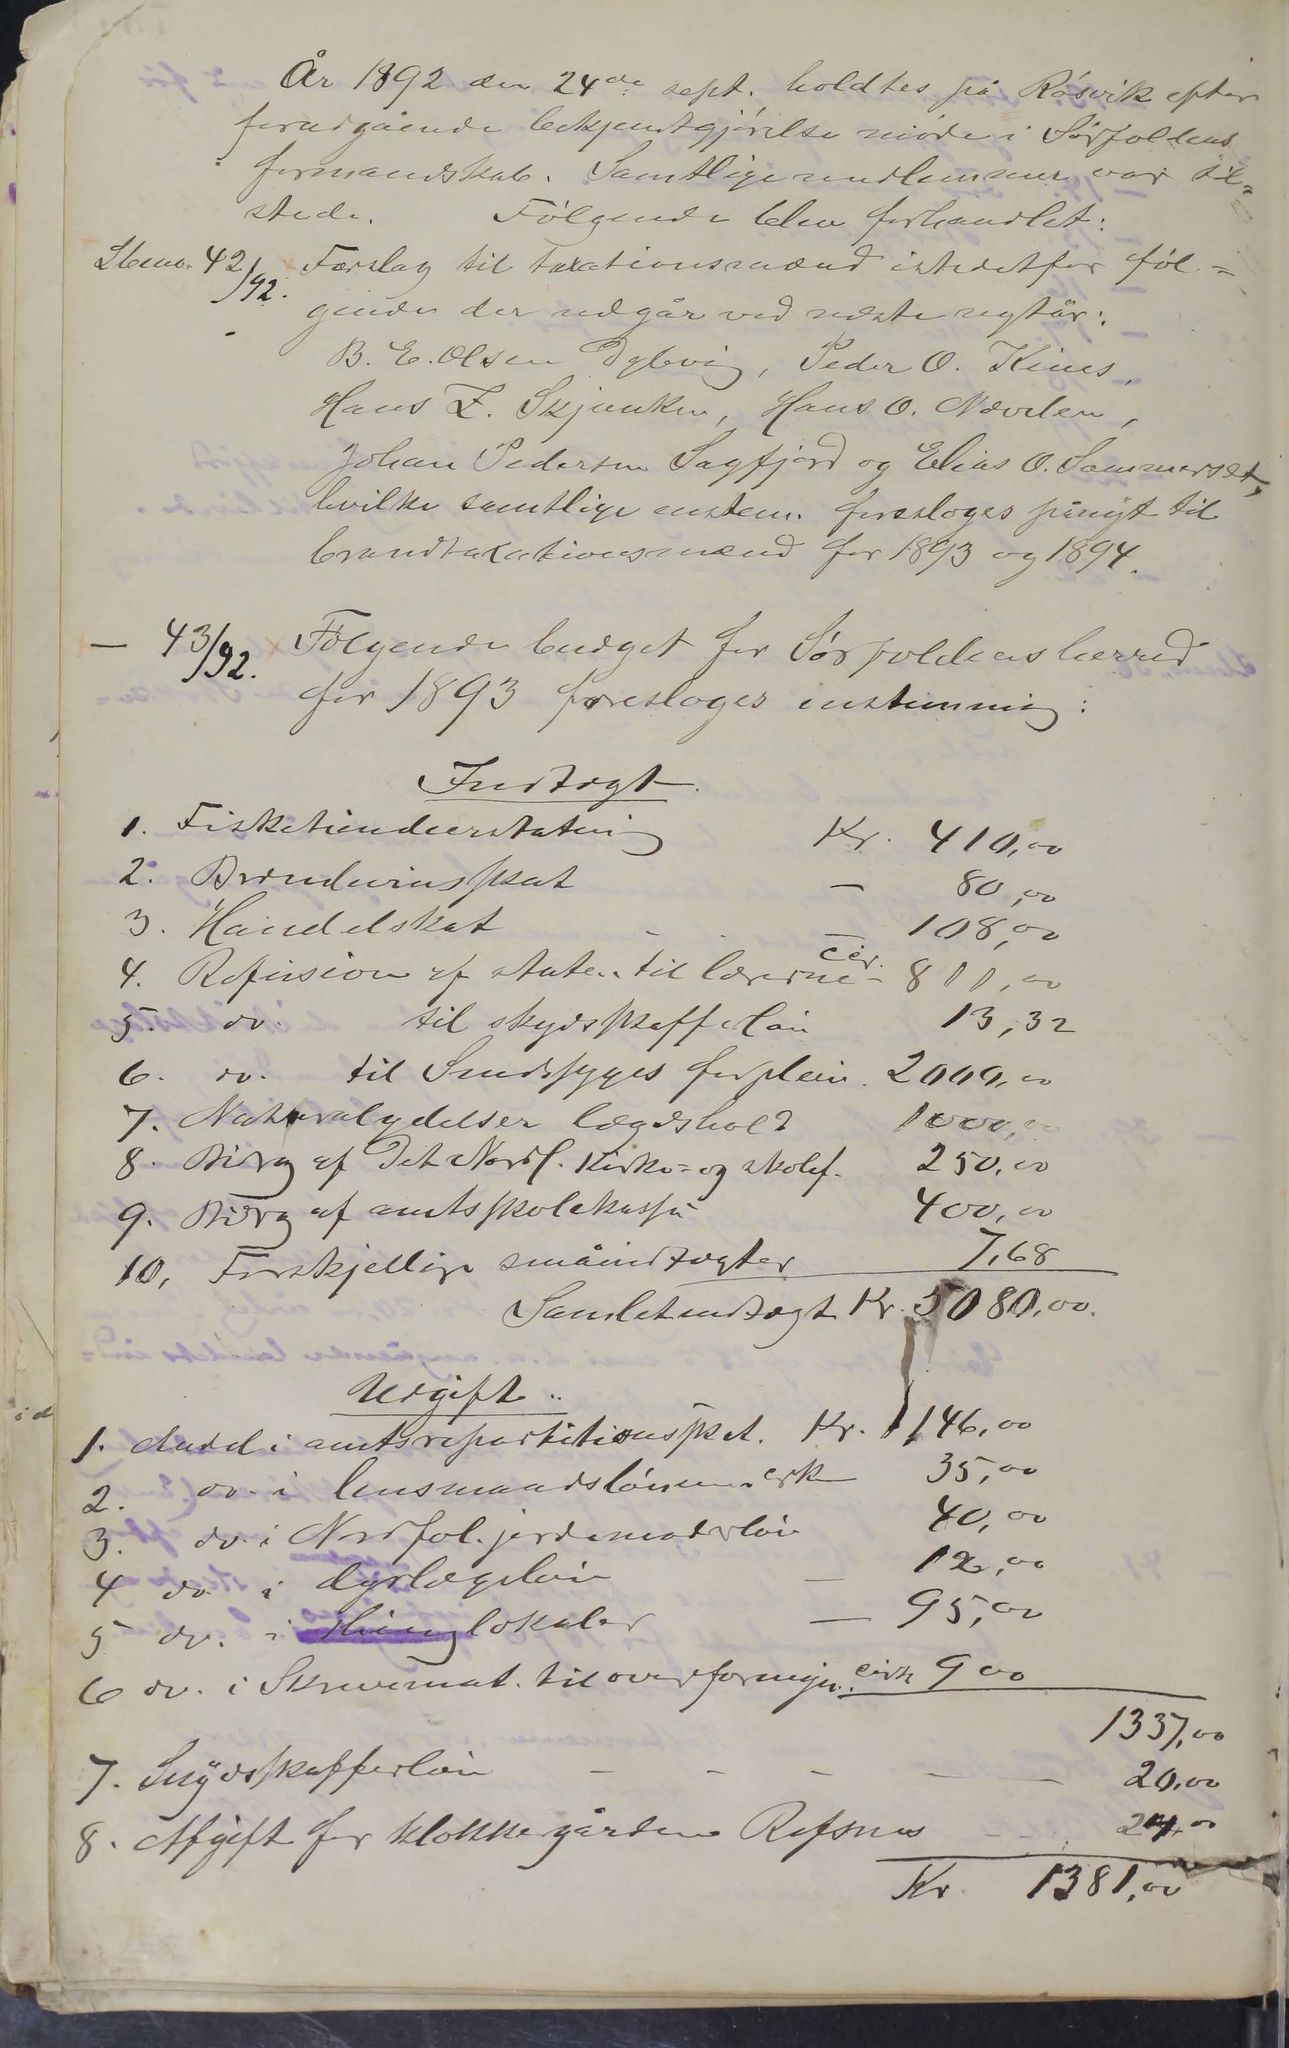 År 1892 den 24de sept. holdtes på Røsvik efter
forudgående bekjentgjørelse møde i Sørfoldens
formandskab. Samtlige medlemmer var til=
stede. Følgende blev forhandlet:
Steno. 42/92. Forslag til taxationsmænd istedetfor føl=
gende der udgår ved næste nytår:
B. E. Olsen Dybvig, Peder O. Kines,
Hans Z. Skjunken, Hans O. Nævelen,
Johan Pedersen Sagfjord og Elias O. Sommerset,
hvilke samtlige enstem. foresloges pånyt til
brandtaxationsmænd for 1893 og 1894.
— 43/92. Følgende budget for Sørfoldens herred
for 1893 foresloges enstemmig:
Indtægt
1. Fisketiendeerstatning Kr. 410,00
2. Brændevinsskat — 80,00
3. Handelskat — 108,00
4. Refusion af staten til lærerne cir. 811,00
5. do. til skydsskafferløn 13,32
6. do. til Sindssyges forplein. 2000,00
7. Naturalydelser lægdshold 1000,00
8. Bidrag af Det Nordl. Kirke= og skolef. 250,00
9. Bidrag af amtsskolekassen 400,00
10, Forskjellige småindtægter 7,68
Samlet indtægt Kr. 5080,00.
Udgift
1. Andel i amtsrepartitionsskat. Kr. 1146,00
2. do. i lensmandslønnen cirk 35,00
3. do. i Nordfol. jordemoderløn 40,00
4 do i dyrlægeløn — 12,00
5 do. i thinglokaler — 95,00
6 do. i Skrivemat. til overformyn. cirk 9 00
1337,00
7. Skydsskafferløn — — — — — 20,00
8. Afgift for klokkergården Refsnes — — — 24,00
Kr. 1381,00